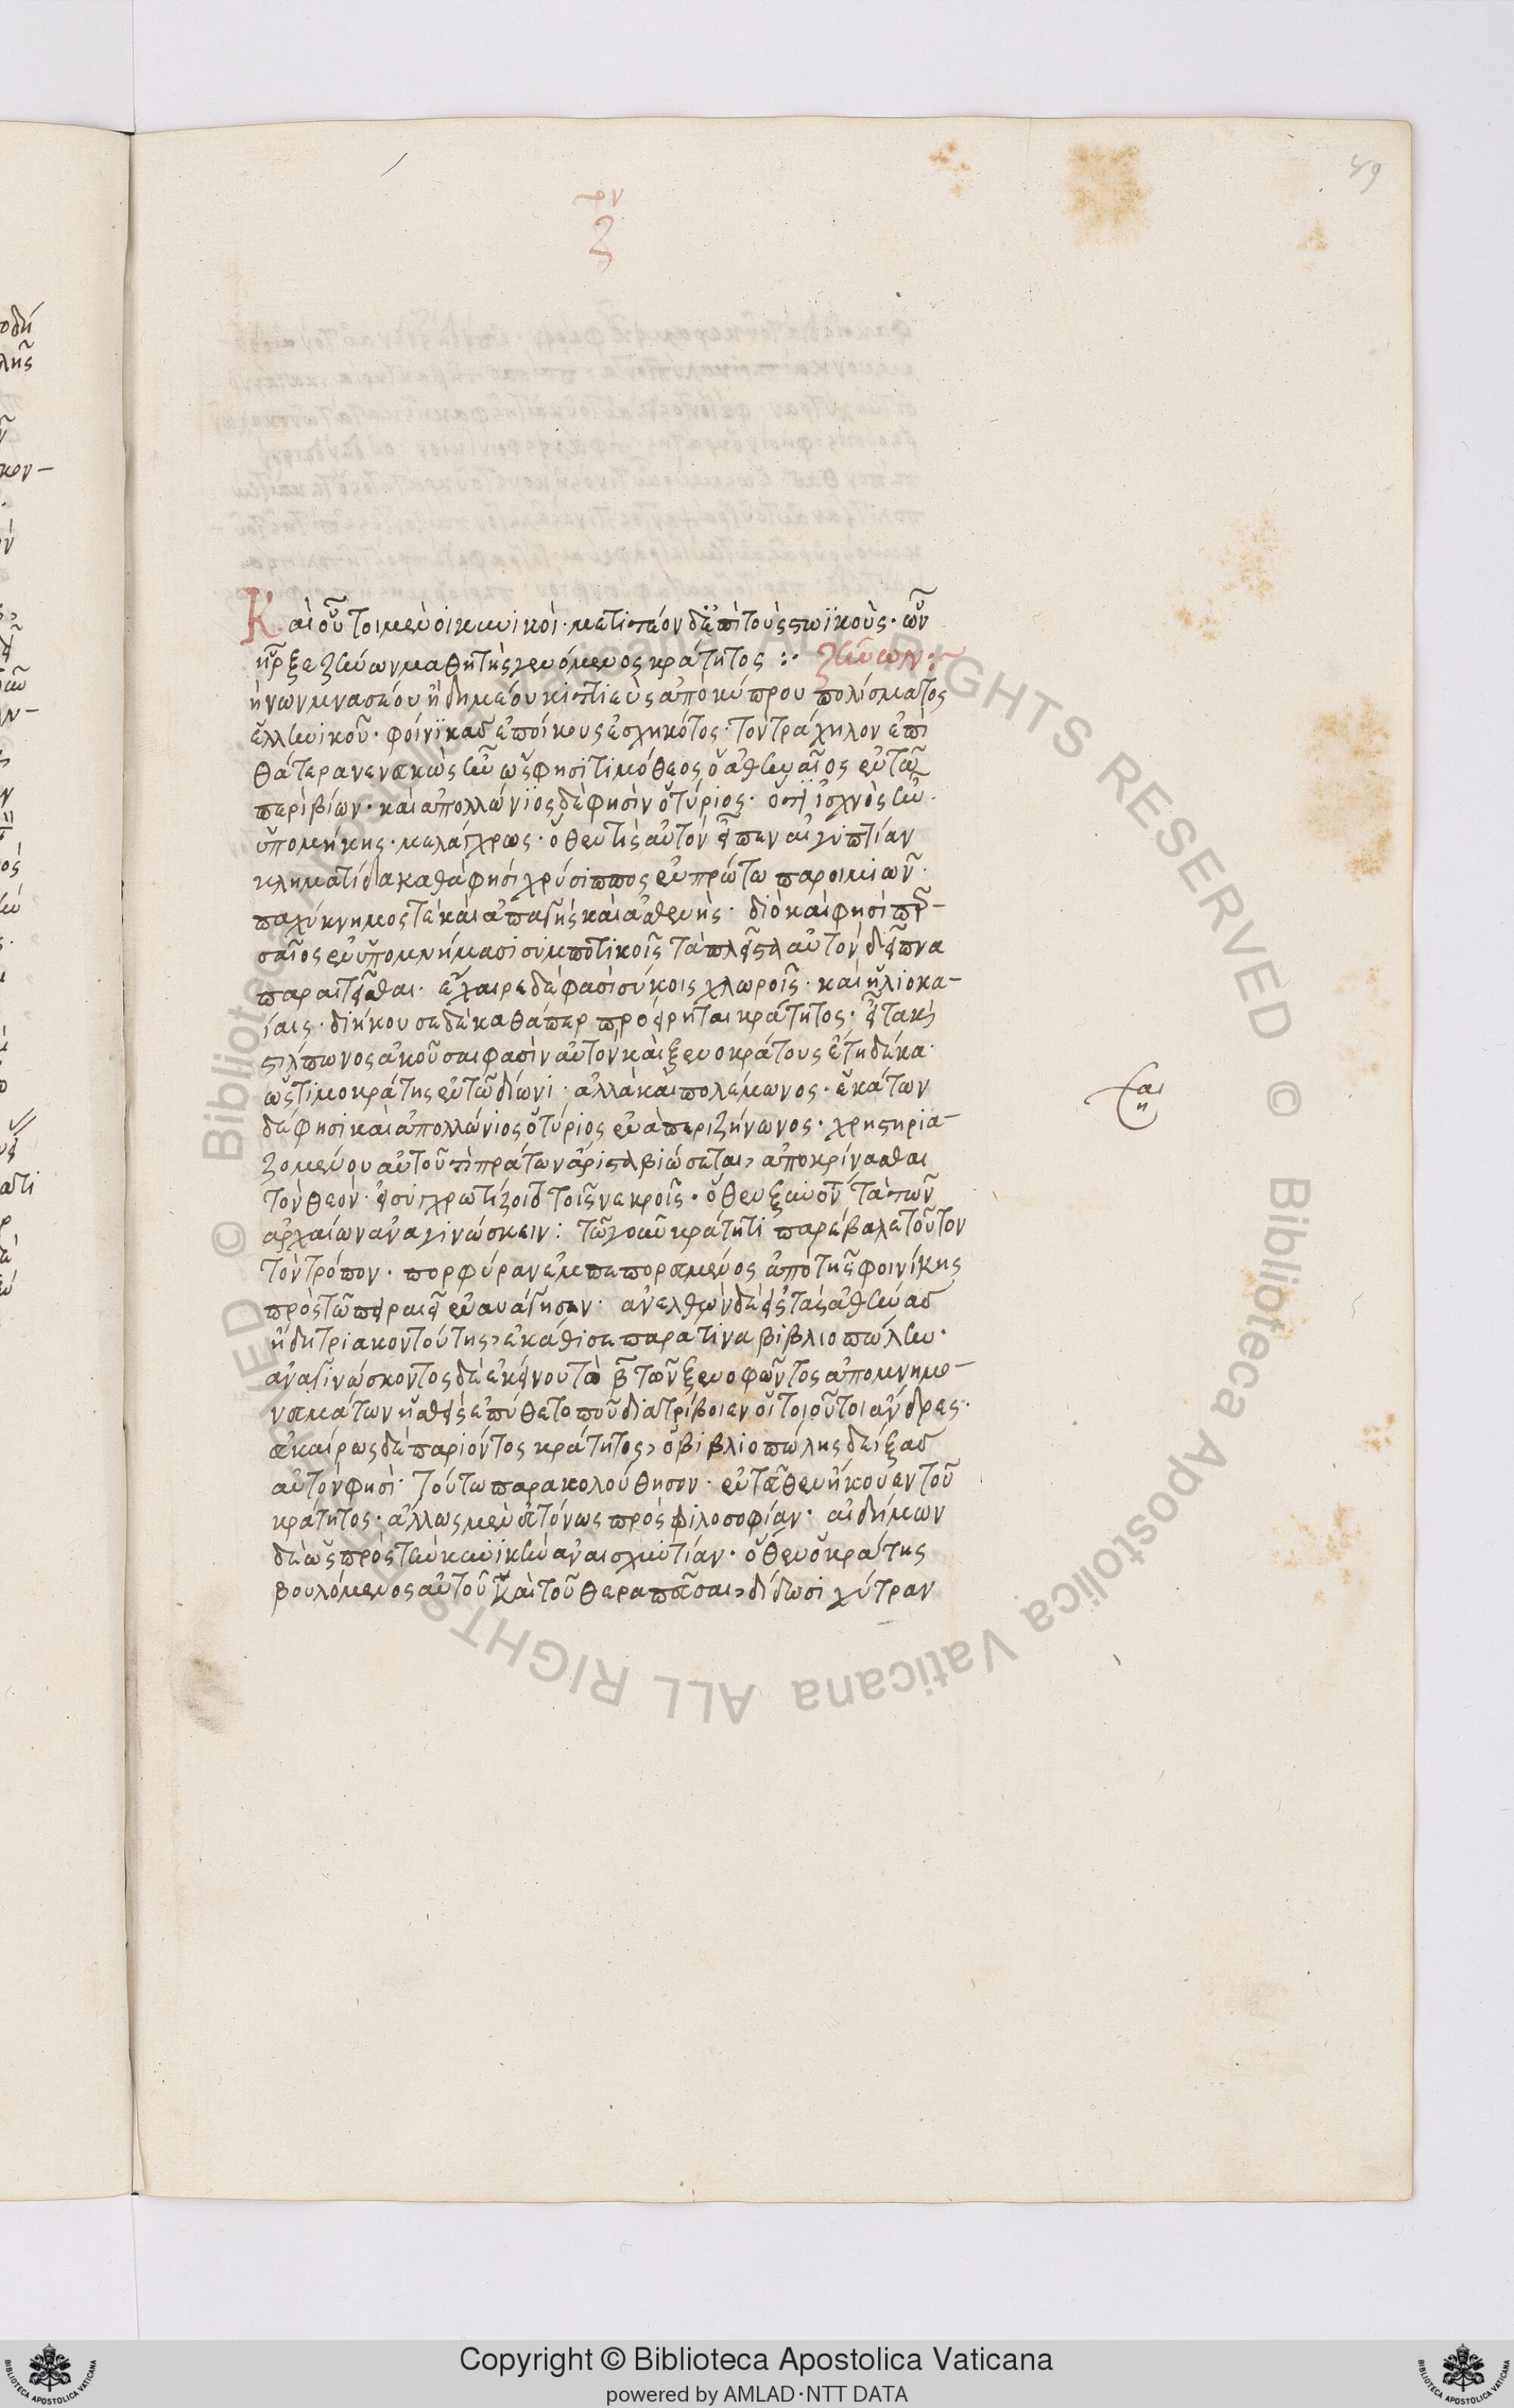 59
ζον
Καὶ οὗτοι μὲν οἱ κυνικοί· μετιτέον δ' ἐπὶ τοὺς στωϊκοὺς· ὧν
ἦρξε ζήνων μαθητὴς γενόμενος κράτητος :· ζήνων :·
ήνων μνασέου ἢ δημέου κιττιεὺς ἀπὸ κύπρου πολίσματος
ἑλληνικοῦ· φοίνϊκας ἐποίκους ἐσχηκότος· τὸν τράχηλον ἐπὶ
θάτερα νενευκὼς ἦν ὥς φησι τιμόθεος ὁ ἀθηναῖος ἐν τῶ
περὶ βίων· καὶ ἀπολλώνϊος δέ φησὶν ὁ τύριος· ὅτι ἰσχνὸς ἦν·
ὑπομήκης· μελάγχρως· ὅθεν τὶς αὐτὸν εἶπεν αἰγυπτίαν
κληματίδα καθά φησι χρύσιππος ἐν πρώτω παροιμιῶν·
παχύκνημός τε καὶ ἀπαγὴς καὶ ἀσθενὴς· διὸ καί φησι περ-
σαῖος ἐν ὑπομνήμασι συμποτικοῖς τὰ πλεῖστα αὐτὸν δεῖπνα
παραιτεῖσθαι· ἔχαιρε δέ φασι σύκοις χλωροῖς· καὶ ἡλιοκα-
ίαις· διήκουσε δὲ καθάπερ προείρηται κράτητος· εἶτα καὶ
στίλπωνος ἀκοῦσαι φασὶν αὐτὸν καὶ ξενοκράτους ἔτη δέκα·
ὡς τιμοκράτης ἐν τῶ δίωνι· ἀλλὰ καὶ πολέμωνος· ἑκάτων
δέ φησι καὶ ἀπολλώνιος ὁ τύριος ἐν α περὶ ζήνωνος· χρηστηρια-
ζομένου αὐτοῦ τί πράττων ἄριστα βιώσεται, ἀποκρίνασθαι
τὸν θεὸν· εἰ συγχρωτίζοιτο τοῖς νεκροῖς· ὅθεν ξυνιόντα τὰ τῶν
ἀρχαίων ἀναγινώσκειν : τῶ γοῦν κράτητι παρέβαλε τοῦτον
τὸν τρόπον· πορφύραν ἐμπεπορευμένος ἀπὸ τῆς φοινίκης
πρὸς τῶ πειραιεῖ ἐναυάγησεν· ἀνελθὼν δὲ εἰς τὰς ἀθήνας
ἤδη τριακοντούτης, ἐκάθισε παρά τινα βιβλιοπώλην·
ἀναγινώσκοντος δὲ ἐκείνου τὸ β τῶν ξενοφῶντος ἀπομνημο-
νευμάτων ἡσθεὶς ἐπύθετο ποῦ διατρίβοιεν οἱ τοιοῦτοι ἄνδρες·
εὐκαίρως δὲ παριόντος κράτητος, ὁ βιβλιοπώλης δείξας
αὐτόν φησι· τούτω παρακολούθησον· ἐντεῦθεν ἤκουεν τοῦ
κράτητος· ἄλλως μὲν εὐτόνως πρὸς φιλοσοφίαν· αἰδήμων
δὲ ὡς πρὸς τὴν κυνικὴν ἀναισχυντίαν· ὅθεν ὁ κράτης
βουλόμενος αὐτοῦ καὶ τοῦ θεραπεῦσαι, δίδωσι χύτραν
Copyright © Biblioteca Apostolica Vaticana
powered by AMLAD·NTT DATA